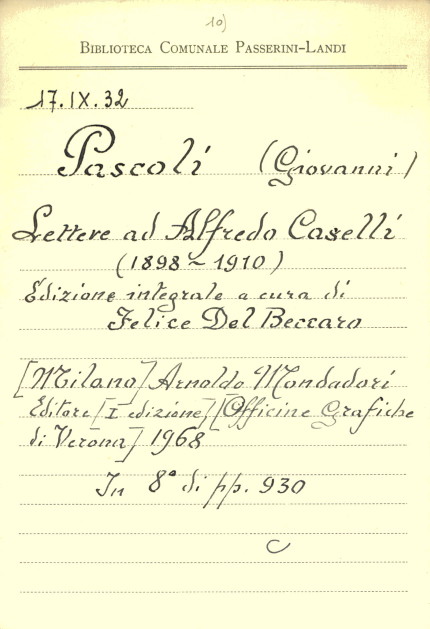 10)
BIBLIOTECA COMUNALE PASSERINI-LANDI
17.IX.32
Pascoli (Giovanni)
Lettere ad Alfredo Caselli
(1898-1910)
Edizione integrale a cura di
Felice Del Beccaro
[Milano] Arnoldo Mondadori
Editore [I edizione] [Officine Grafiche
di Verona] 1968
In 8° di pp. 930
C